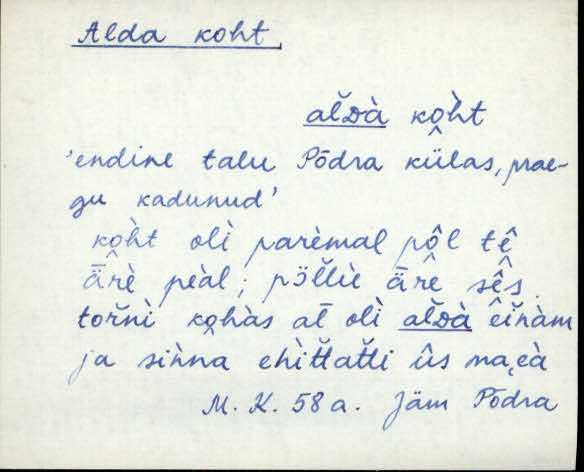 Alda koht.
al̆ᴅà ko̭ht
'endine talu Põdra külas, prae-
gu kadunud'
ko̭ht olì parèmal pô̭l tḙ̂
ǟrè peàl; põl̆lìè ǟrê sês
torn̆nì ko̭hàs al̄ olì al̆ᴅà êi̭n̆àm
ja siǹna ehìt̆tat̆ti ûs maɛà
M. K. 58 a. Jäm Põdra